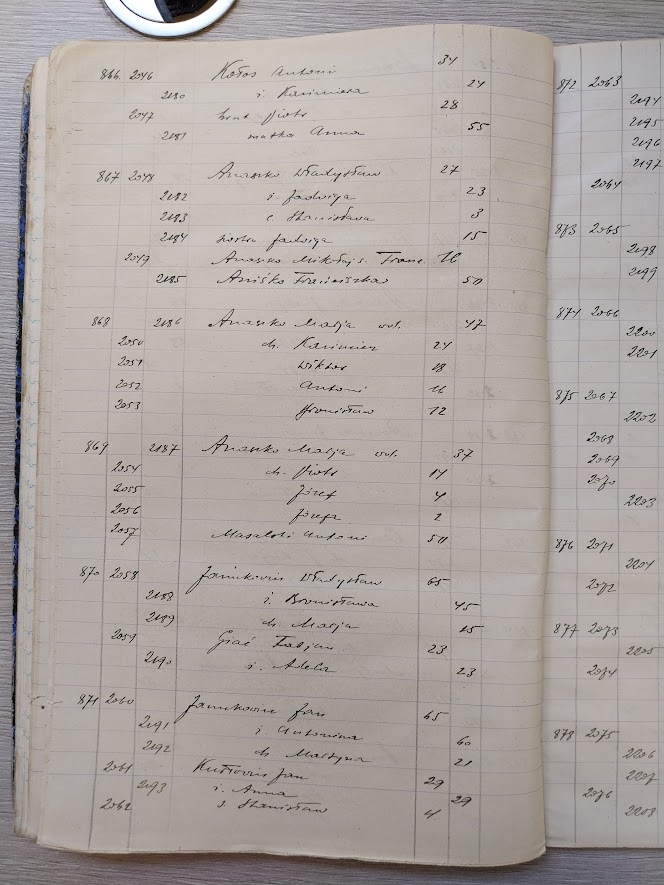 866. 2046 Kołos Antoni 34
2180 ż. Kazimiera 24
2047 brat Piotr 28
2181 matka Anna 55
867 2048 Anaszko Władysław 27
2182 ż. Jadwiga 23
2183 c. Stanisława 3
2184 siostra Jadwiga 15
2049 Anaszko Mikołaj s. Franc.
2185 Franciszka 50
868 2186 Anaszko Marja wd. 47
2050 dz. Kazimierz 24
2051 Wiktor 18
2052 Antoni 16
2053 Bronisław 12
869 2187 Anaszko Marja wd. 37
2054 dz. Piotr 14
2055 Józef 4
2056 Józefa 2
2057 Masalski Antoni 50
870 2058 Janukowicz Władysław 65
2188 ż. Bronisława 45
2189 dz. Marja 15
2059 Fabjan 23
2190 ż. Adela 23
871 2060 Janukowicz Jan 65
2191 ż. Antonina 60
2192 dz. Martyna 21
2061 Jan 29
2193 ż. Anna 29
2062 s. Stanisław 4
872 2063
2194
2195
2196
2197
2064
873 2065
2198
2199
874 2066
2200
2201
875 2067
2202
2068
2069
2070
2203
876 2071
2204
2072
877 2073
2205
2074
878 2075
2206
2207
2076
2208